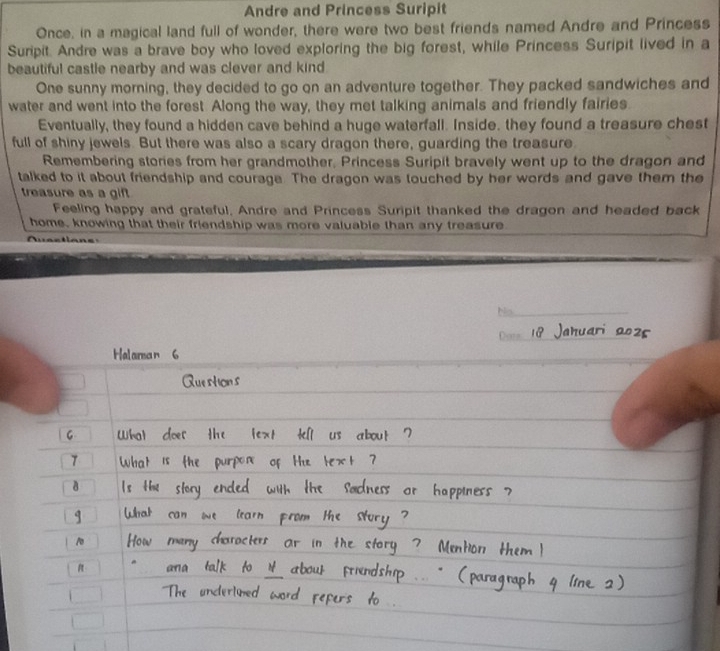 Andre and Princess Suripit
Once, in a magical land full of wonder, there were two best friends named Andre and Princess
Suripit. Andre was a brave boy who loved exploring the big forest, while Princess Suripit lived in a
beautiful castle nearby and was clever and kind.
One sunny morning, they decided to go on an adventure together. They packed sandwiches and
water and went into the forest. Along the way, they met talking animals and friendly fairies.
Eventually, they found a hidden cave behind a huge waterfall. Inside, they found a treasure chest
full of shiny jewels. But there was also a scary dragon there, guarding the treasure.
Remembering stories from her grandmother, Princess Suripit bravely went up to the dragon and
talked to it about friendship and courage. The dragon was touched by her words and gave them the
treasure as a gift.
Feeling happy and grateful, Andre and Princess Suripit thanked the dragon and headed back
home, knowing that their friendship was more valuable than any treasure.
Questions:
No.
Date 18 Januari 2025
Halaman 6
Questions
6 What does the text tell us about ?
7 What is the purpose of the text ?
8 Is the story ended with the sadness or happiness ?
9 What can we learn from the story ?
10 How many characters ar in the story ? Mention them !
11 " and talk to it about friendship ... " (paragraph 4 line 2)
The underlined word refers to ..